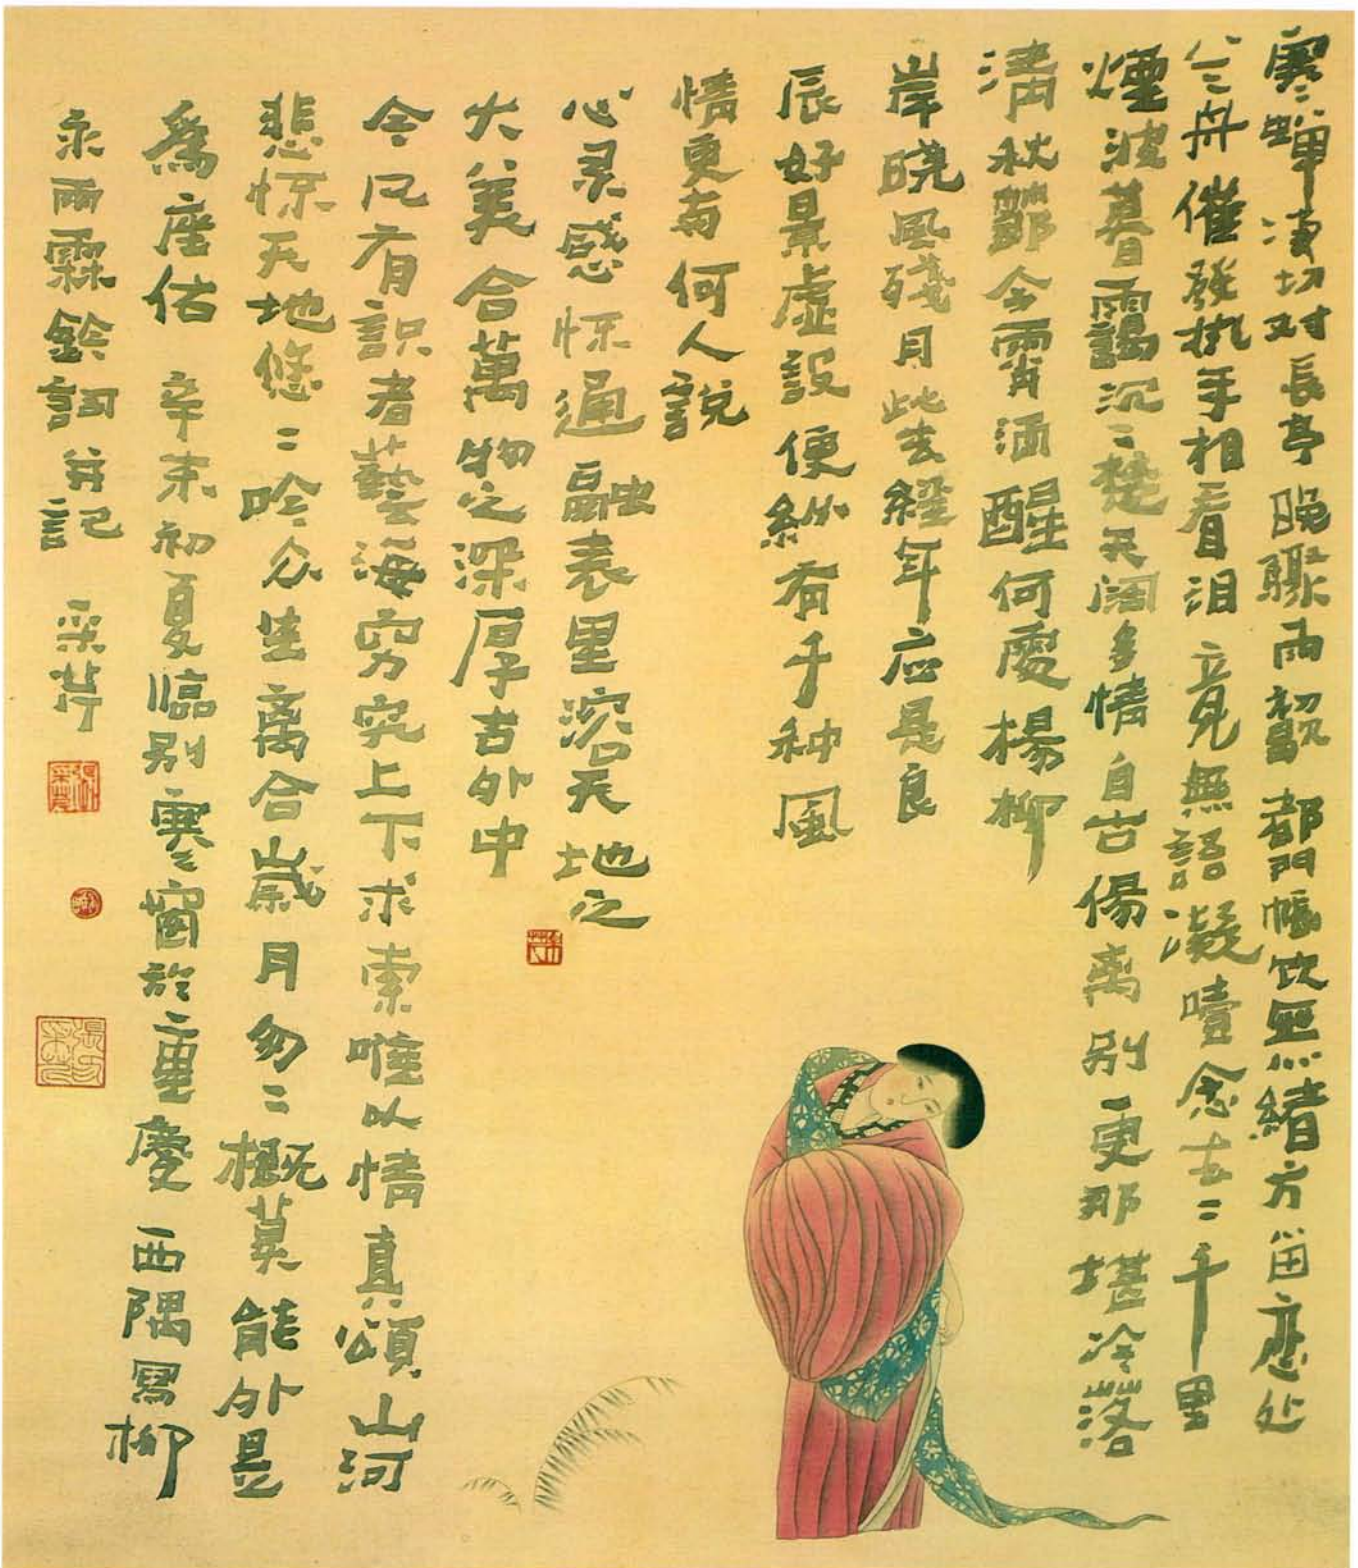 寒蝉凄切对長亭晚驟雨初歇都門帳饮無緒方留恋处
兰舟催發执手相看泪竟無語凝噎念去二千里
煙波暮靄沉二楚天阔多情自古傷离别更那堪冷落
清秋節今宵酒醒何處楊柳
岸曉風殘月此去經年应是良
辰好景虛設便纵有千种風
情更与何人說
心灵感惊通融表里溶天地之
大美合萬物之深厚古外中
今凡有識者藝海穷究上下求索唯以情真頌山河
悲惊天地悠二吟众生离合嵗月匆二概莫能外是
為座佑 辛未初夏臨别寒窗於重慶西隅寫柳
永雨霖鈴詞并記 采芹